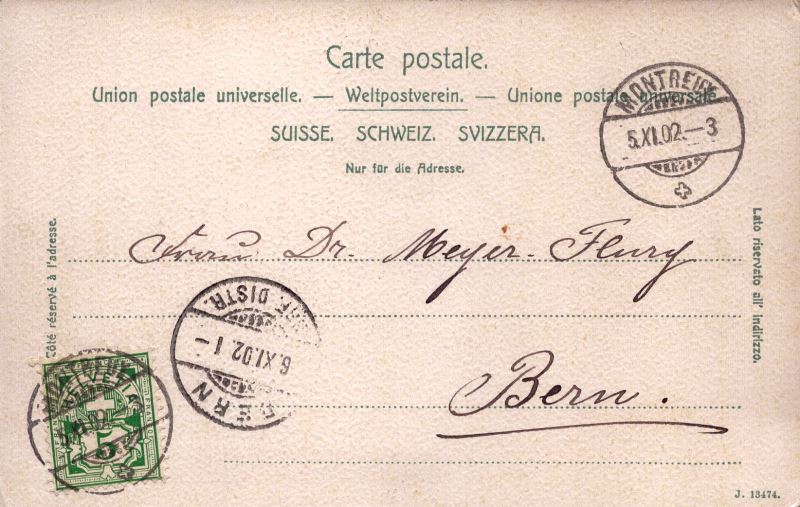 Carte postale.
Union postale universelle. — Weltpostverein. — Unione postale universale.
SUISSE. SCHWEIZ. SVIZZERA.
Nur für die Adresse.
MONTREUX
5.XI.02.–3
Côté réservé à l'adresse.
Lato riservato all' indirizzo.
Frau Dr. Meyer-Flury
Bern.
BERN
DISTR.
6.XI.02 1–
HELVETIA
5
J. 13474.